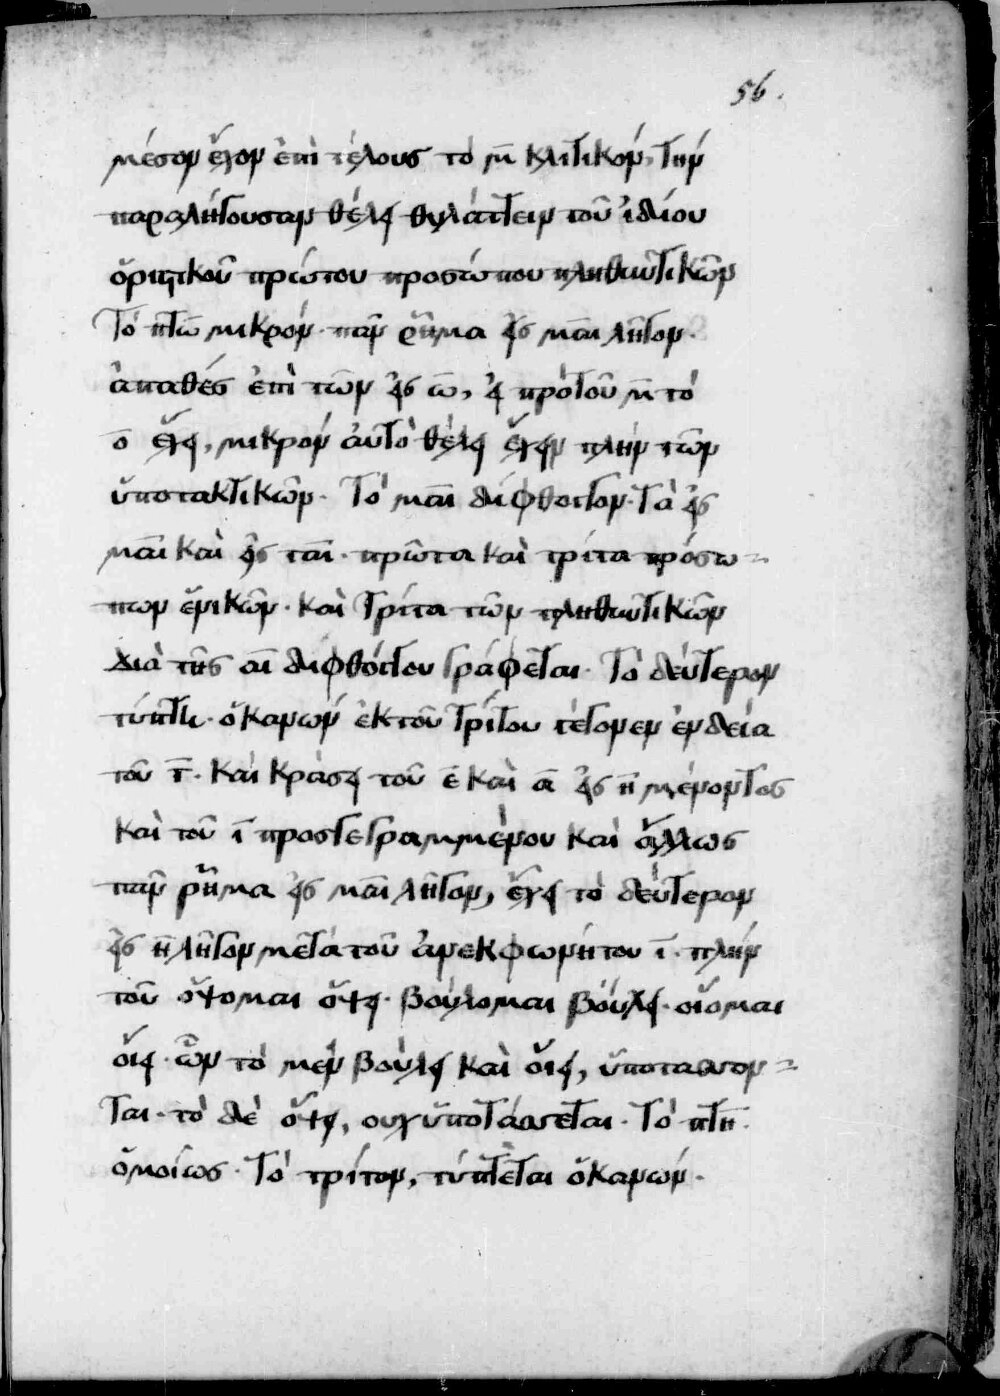 56.
μέσον ἔχον ἐπὶ τέλους τὸ μ̄ κλιτικόν, τὴν
παραλήγουσαν θέλει φυλάττειν τοῦ ἰδίου
ὁριστικοῦ πρώτου προσώπου πληθυντικῶν
Τὸ πτω μικρόν· πᾶν ῥῆμα εἰς μαι λῆγον·
ἀπαθές ἐπὶ τῶν εἰς ω̄, εἰ πρὸ τοῦ μ̄ τὸ
ο̄ ἔχει, μικρὸν αὐτὸ θέλει ἔχειν πλὴν τῶν
ὑποτακτικῶν· Τὸ μαι δίφθογγον· Τὰ εἰς
μαι καὶ εἰς ται· πρῶτα καὶ τρίτα προσώ=
πων ἑνικῶν· καὶ τρίτα τῶν πληθυντικῶν
διὰ τῆς αι διφθόγγου γράφεται· Τὸ δεύτερον
τύπτῃ· ὁ κανών ἐκ τοῦ τρίτου γέγονεν ἐνδεία
τοῦ τ̄· καὶ κράσει τοῦ ε̄ καὶ ᾱ εἰς η̄ μένοντος
καὶ τοῦ ῑ προσγεγραμμένου καὶ ἄλλως
πᾶν ῥῆμα εἰς μαι λῆγον, ἔχει τὸ δεύτερον
εἰς η̄ λῆγον μετὰ τοῦ ἀνεκφωνήτου ῑ· πλὴν
τοῦ ὄψομαι ὄψει· βούλομαι βούλει· οἴομαι
οἴει· ὧν τὸ μὲν βούλει καὶ οἴει, ὑποτάσσον=
ται· τὸ δὲ ὄψει, οὐχ ὑποτάσσεται· Τὸ πτη·
ὁμοίως· Τὸ τρίτον, τύπτεται ὁ κανών·